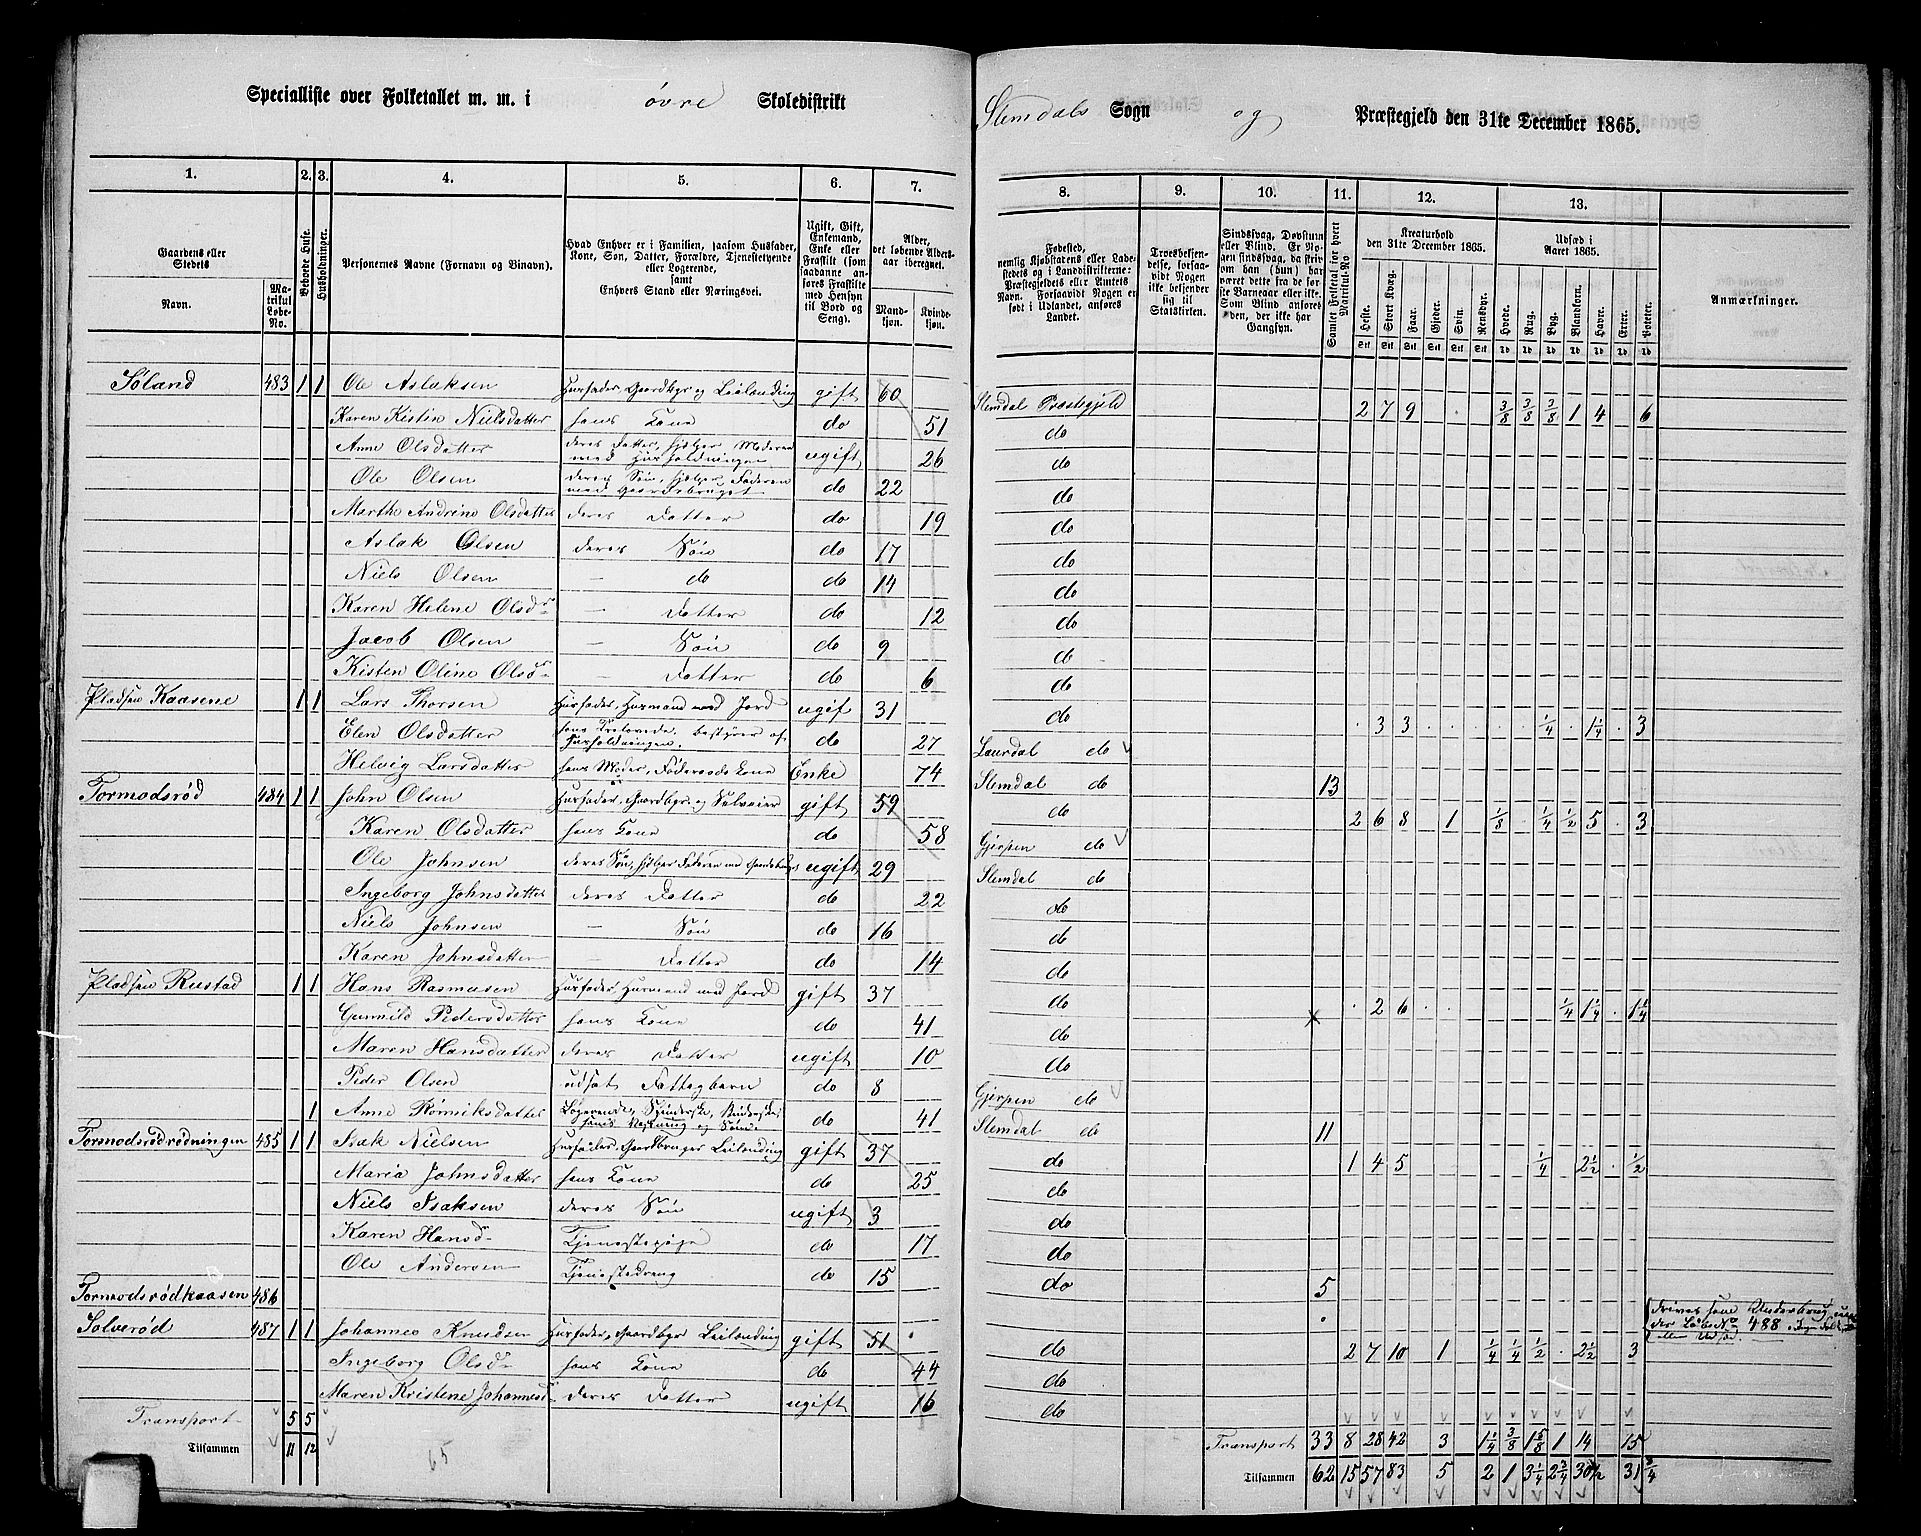 Specialliste over Folketallet m. m. i øvre Skoledistrikt
Slemdals Sogn og Præstegjeld den 31te December 1865.
1. 2. 3. 4. 5. 6. 7. 8. 9. 10. 11. 12. 13.
Gaardens eller Stedets
Navn.
Matrikul Løbe-No.
Beboede Huse.
Husholdninger.
Personernes Navne (Fornavn og Tilnavn).
Hvad Enhver er i Familien, saasom Husfader, Kone, Søn, Datter, Forældre, Tjenestetyende eller Logerende, samt Enhvers Stand eller Næringsvei.
Ugift, Gift, Enkemand, Enke eller Fraskilt (som saadanne anføres Fraskilte med Hensyn til Bord og Seng).
Alder, det løbende Alders-aar iberegnet.
Mandkjøn. Kvindekjøn.
Fødested, nemlig Kjøbstadens eller Ladestedets og i Landdistrikterne: Præstegjeldets eller Amtets Navn. Forsaavidt Nogen er født i Udlandet, anføres Landet.
Troesbekjendelse, forsaavidt Nogen ikke bekjender sig til Statskirken.
Sindssvag, Døvstum eller Blind. Er Nogen sindssvag, da skriv om han (hun) har været dette fra de første Barneaar eller ikke. Som Blind anføres den, der ikke har Gangsyn.
Samlet Folketal for hvert Matrikul-No
Kreaturhold den 31te December 1865.
Udsæd i Aaret 1865.
Anmærkninger.
Heste. Stort Kvæg. Faar. Gjeder. Svin. Rensdyr. Hvede. Rug. Byg. Blandkorn. Havre. Erter. Poteter.
Søland 483 1 1 Ole Aslaksen Husfader, Gaardbgr og Leilending gift 60 Slemdal Præstegjeld 2 7 9 3/8 3/8 3/8 1 4 6
Karen Kistin Nielsdatter hans Kone do 51 do
Anne Olsdatter deres Datter, hjelper Moderen med Husholdningen ugift 26 do
Ole Olsen deres Søn, hjelper Faderen med Gaardsbruget do 22 do
Marthe Andrine Olsdatter deres Datter do 19 do
Aslak Olsen deres Søn do 17 do
Niels Olsen — do do 14 do
Karen Helene Olsdr — Datter do 12 do
Jacob Olsen — Søn do 9 do
Kisten Oline Olsdr — Datter do 6 do
Pladsen Kaasene 1 1 Lars Thorsen Husfader, Husmand med Jord ugift 31 do 3 3 1/4 1 1/4 3
Elen Olsdatter hans Trolovede, bestyrer af Husholdningen. do 27 Laurdal do
Helvig Larsdatter hans Moder, Føderaads Kone Enke 74 Slemdal do 13
Tormodsrød 484 1 1 John Olsen Husfader, Gaardbgr. og Selveier gift 59 do 2 6 8 1 1/8 1/4 1/2 5 3
Karen Olsdatter hans Kone do 58 Gjerpen do
Ole Johnsen deres Søn, hjelper Faderen med Gaardsbruget ugift 29 Slemdal do
Ingeborg Johnsdatter deres Datter do 22 do
Niels Johnsen — Søn do 16 do
Karen Johnsdatter — Datter do 14 do
Pladsen Rustad 1 1 Hans Rasmusen Husfader, Husmand med Jord gift 37 do 2 6 1/4 1 1/4 1 1/4
Gunnild Pedersdatter hans Kone do 41 do
Maren Hansdatter deres Datter ugift 10 do
Peder Olsen udsat Fattigbarn do 8 Gjerpen do
1 Anne Logerende, Spinderske, do 41 Slemdal do 11
Tormodsrødrødningen 485 1 1 Isak Nielsen Husfader, Gaardbruger Leilending gift 37 do 1 4 5 1/4 2 1/2 1/2
Maria Johnsdatter hans Kone do 25 do
Niels Isaksen deres Søn ugift 3 do
Karen Hansdr Tjenestepige do 17 do
Ole Andersen Tjenestedreng do 15 do 5
Tormodsrødkaasen 486 drives som Underbrug under Løbe No 488
Solverød 487 1 1 Johannes Knudsen Husfader, Gaardbgr Leilending gift 51 do 2 7 10 1 1/4 1/4 1/2 2 1/2 3
Ingeborg Olsdr hans Kone do 44 do
Maren Kristene Johannesd deres Datter ugift 16 do
Transport 5 5 Transport 33 8 28 42 3 1 1/4 3/8 1 5/8 1 14 15
Tilsammen 11 12 Tilsammen 62 15 57 83 5 2 1 3 1/4 2 3/4 30 1/2 31 3/4
65